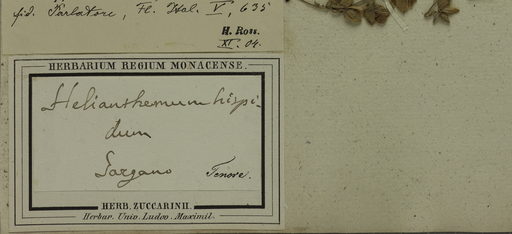 fid. Parlatore, Fl. Ital. V, 635
H. Ross.
XI. 04.
HERBARIUM REGIUM MONACENSE.
Helianthemum hispi-
dum
Gargano Tenore.
HERB. ZUCCARINII.
Herbar. Univ. Ludov. Maximil.